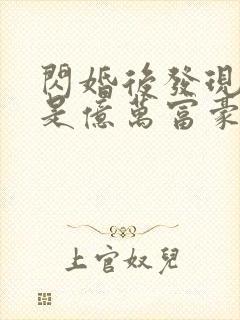 閃婚後發現
是億萬富豪
上官奴兒